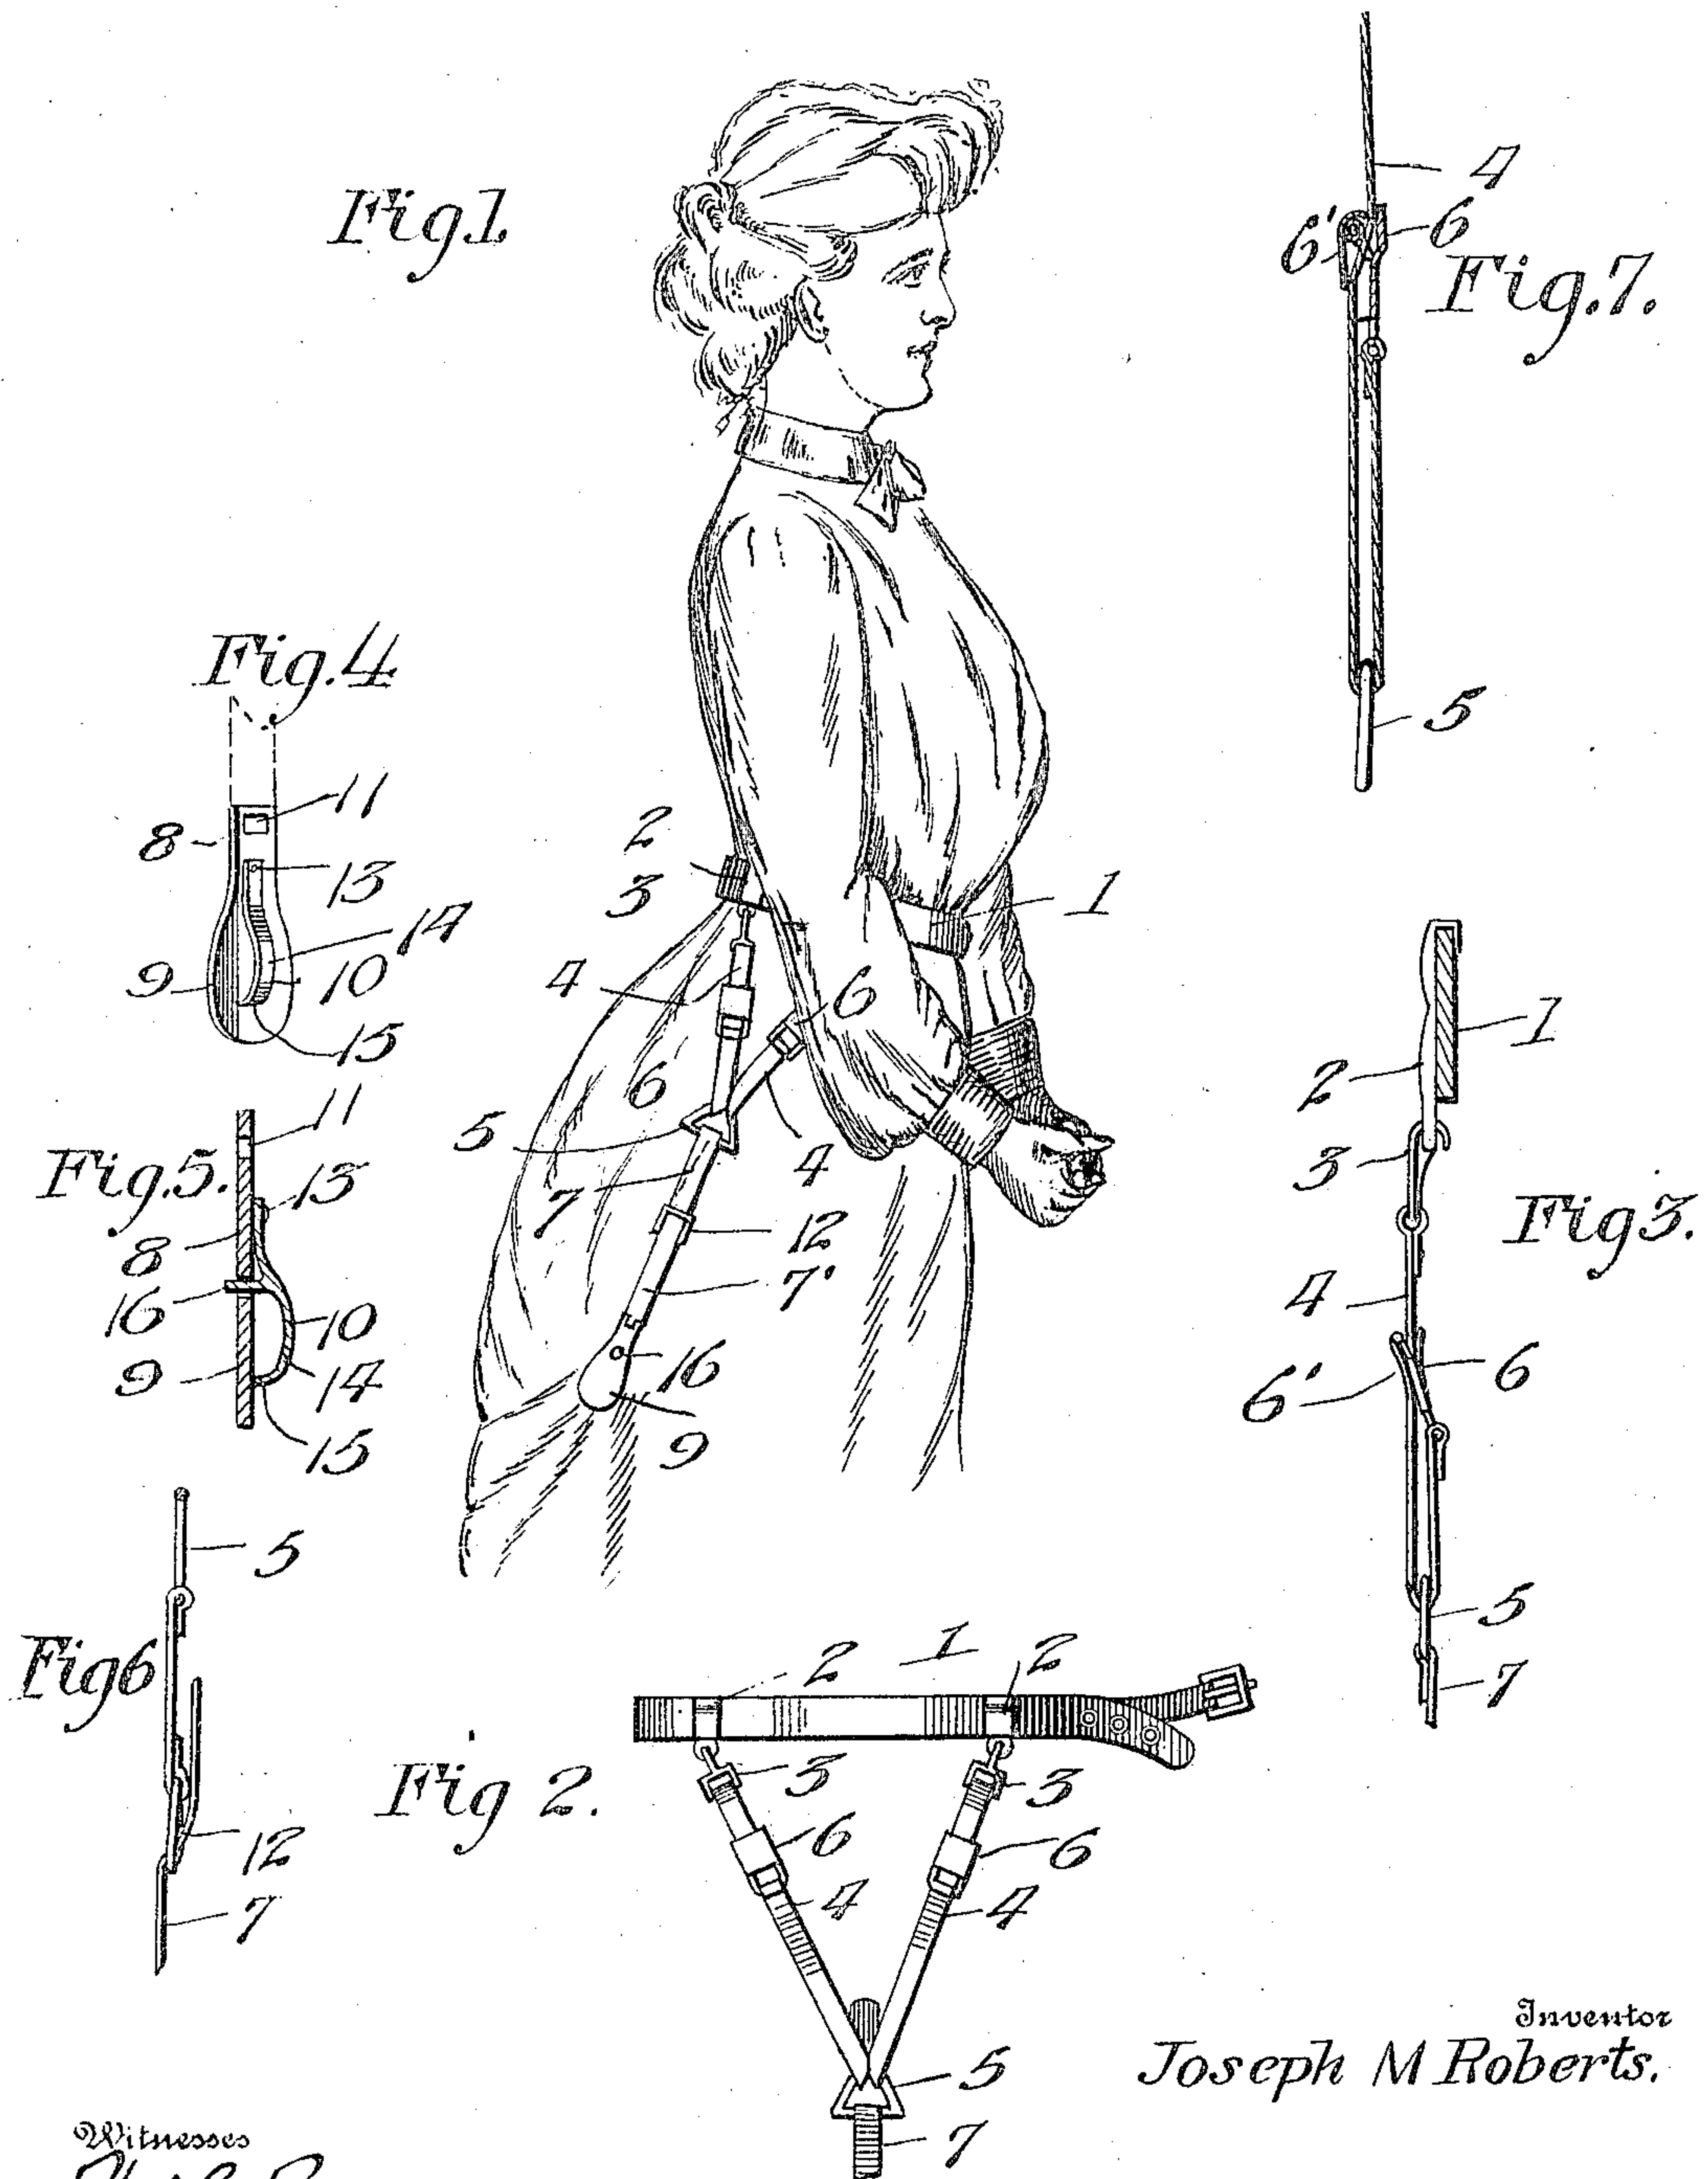 Fig1.
4
6'
6
Fig.7.
5
Fig.4
11
8
13
14
9
10
15
2
3
1
4
6
6
5
4
7
12
7'
16
9
11
Fig.5.
13
8
16
10
9
14
15
1
2
3
Fig3.
4
6
6'
5
7
5
Fig6
12
7
2
1
2
Fig 2.
3
3
6
6
4
4
5
7
Inventor
Joseph M Roberts.
Witnesses